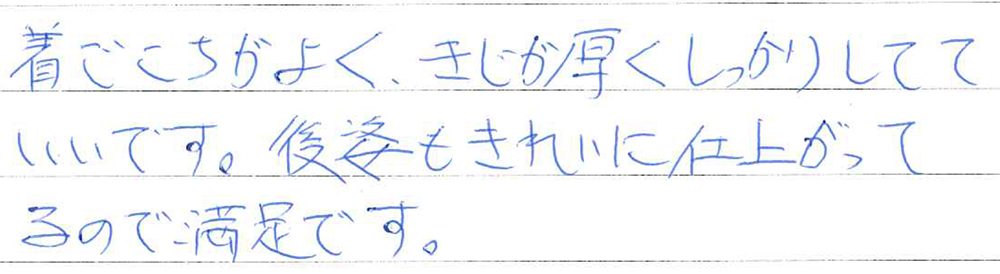 着ごこちがよく、きじが厚くしっかりしてて
いいです。後姿もきれいに仕上がって
るので満足です。